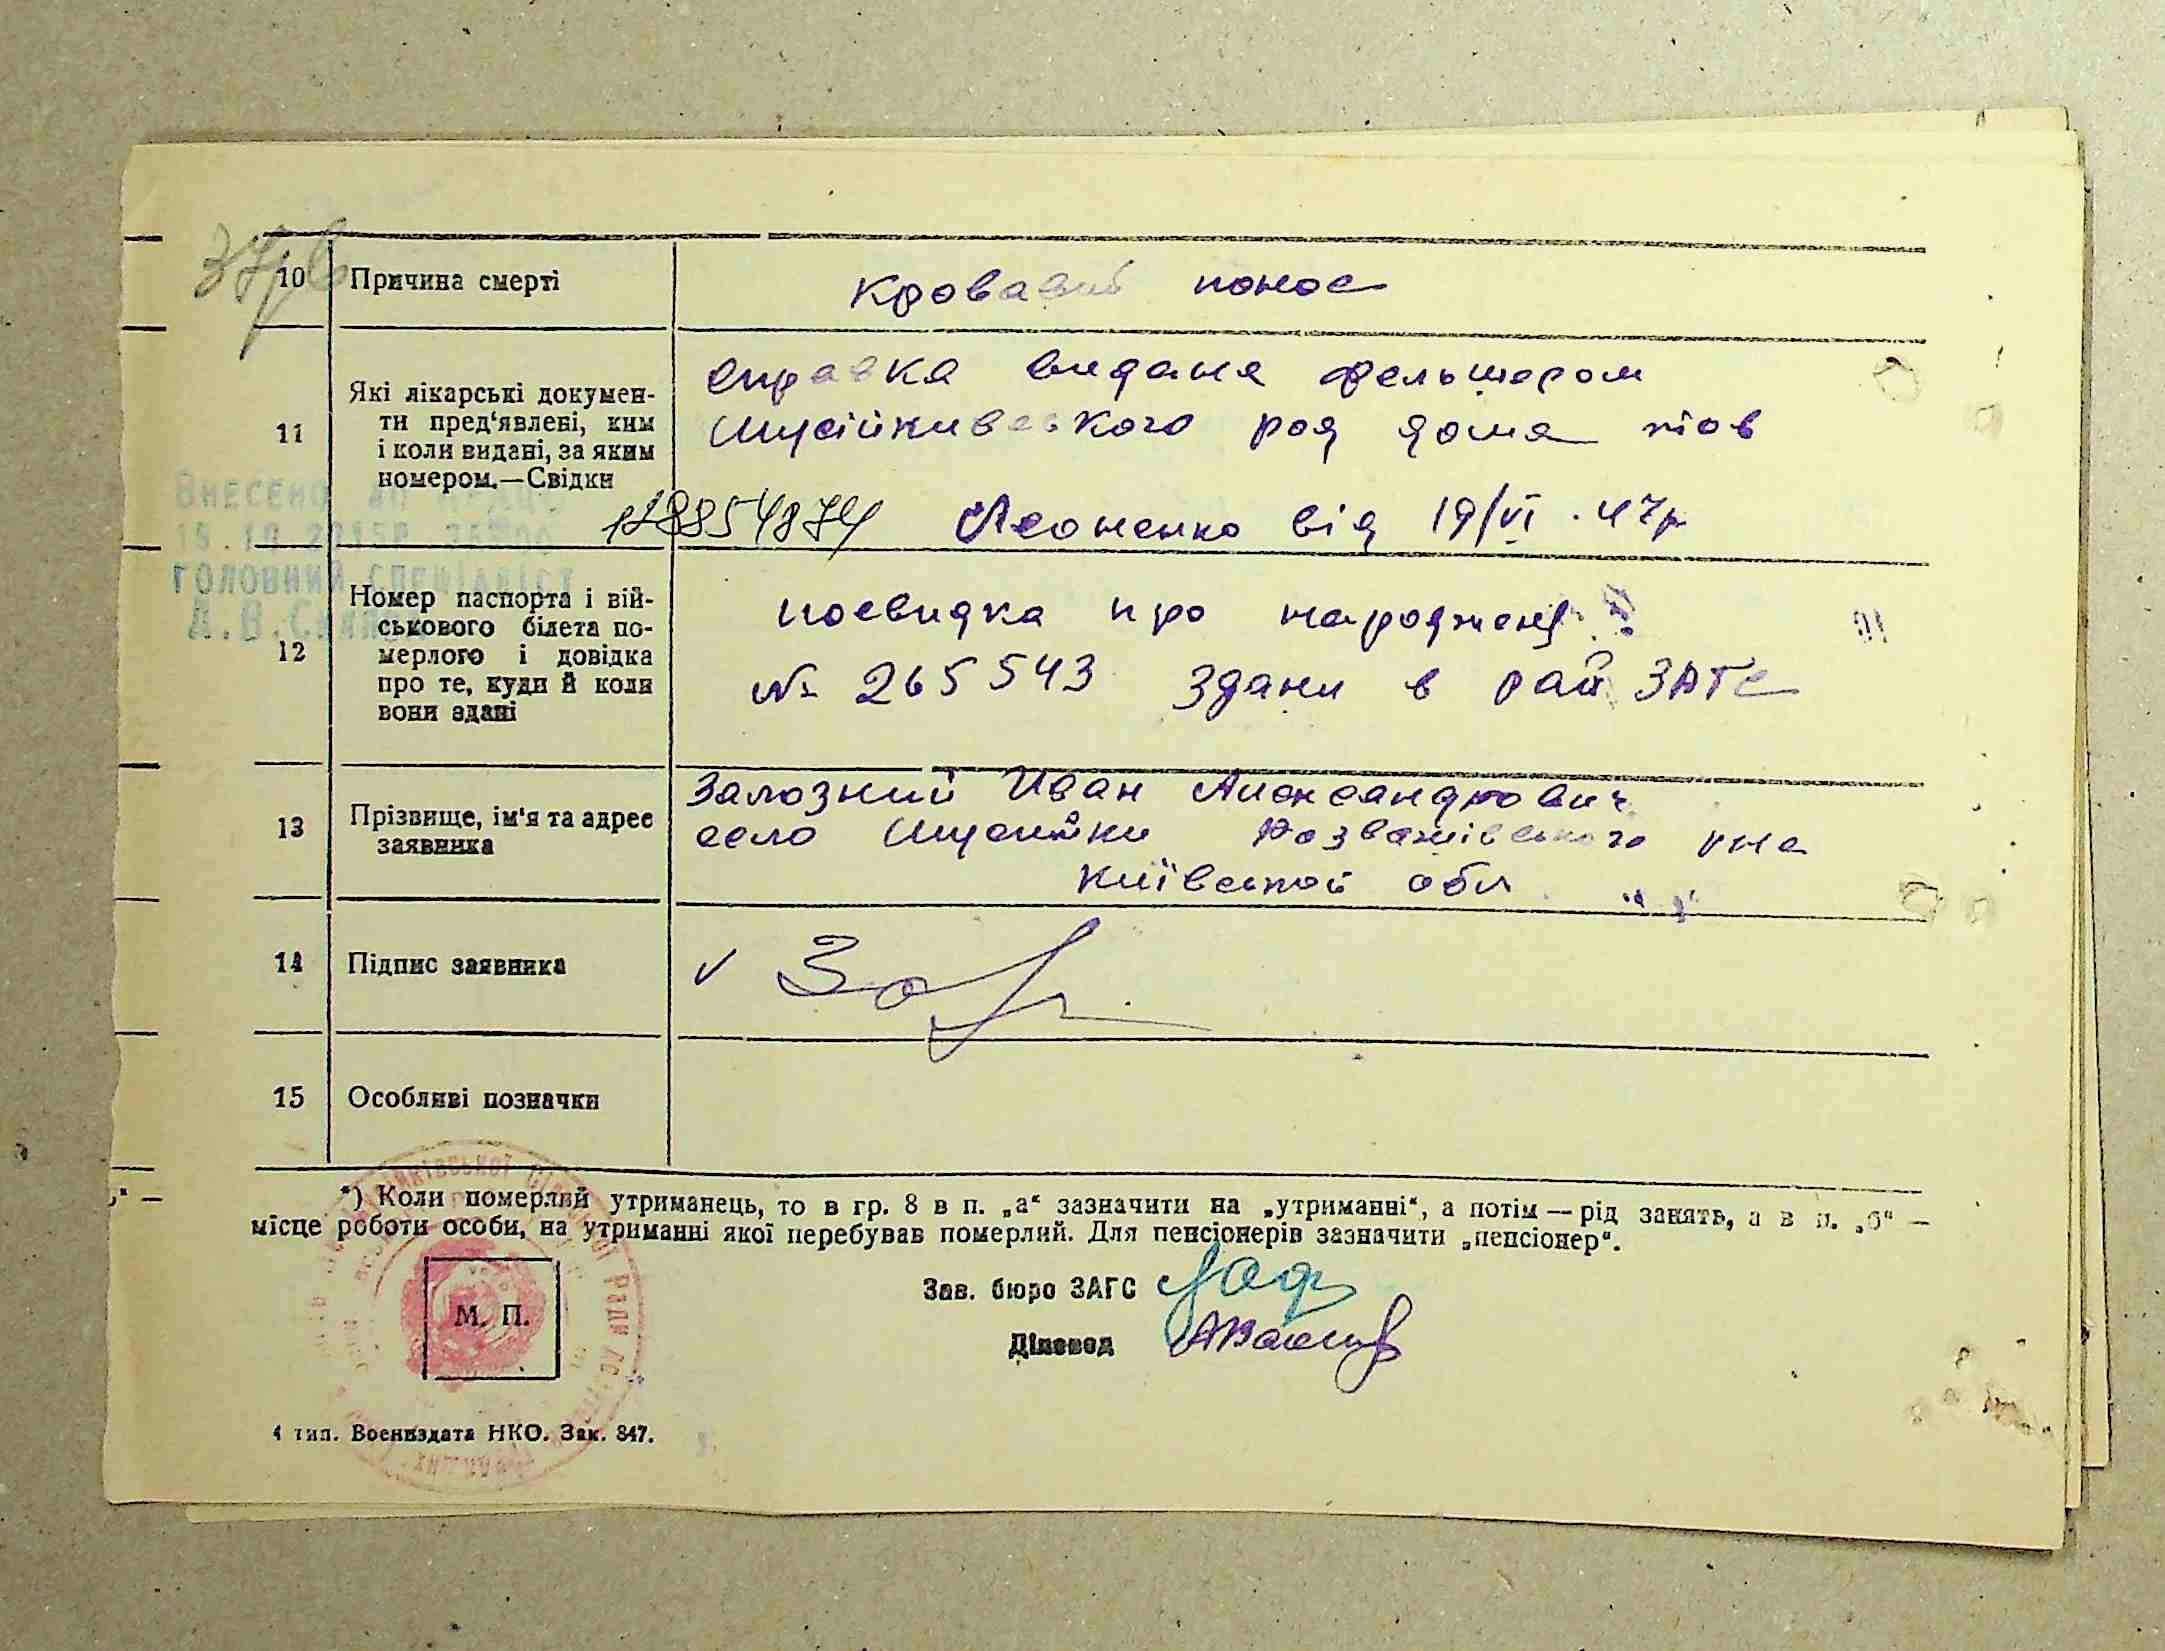 37 зв
10 Причина смерті
Кровавий понос
11 Які лікарські докумен-
ти пред'явлені, ким
і коли видані, за яким
номером.—Свідки
справка видана фельшером
Мусійкивського род дома тов
12854874 Леоненко від 19/VI.47р
Внесено до
15.10.2015р.
головний спеціаліст
12 Номер паспорта і вій-
ськового білета по-
мерлого і довідка
про те, куди й коли
вони здані
посвидка про народжен
№ 265543 здани в рай ЗАГС
13 Прізвище, ім'я та адрес
заявника
Залозний Иван Александрович
село Мусийки Розважівського р-на
Київської обл
14 Підпис заявника
v Зал
15 Особливі позначки
*) Коли померлий утриманець, то в гр. 8 в п. „а“ зазначити на „утриманні“, а потім — рід занять, а в п. „б“ —
місце роботи особи, на утриманні якої перебував померлий. Для пенсіонерів зазначити „пенсіонер“.
Зав. бюро ЗАГС
М. П.
Діловод
4 тип. Воениздата НКО. Зак. 847.